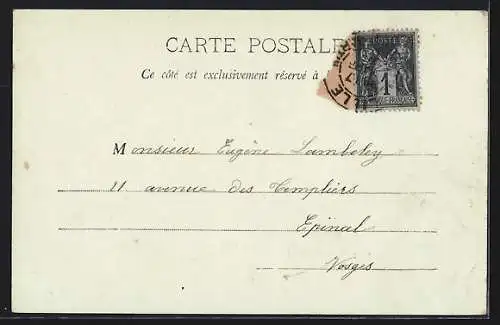 CARTE POSTALE
Ce côté est exclusivement réservé à
POSTE
1
Monsieur Eugène Lamboley
21 avenue des Templiers
Epinal
Vosges